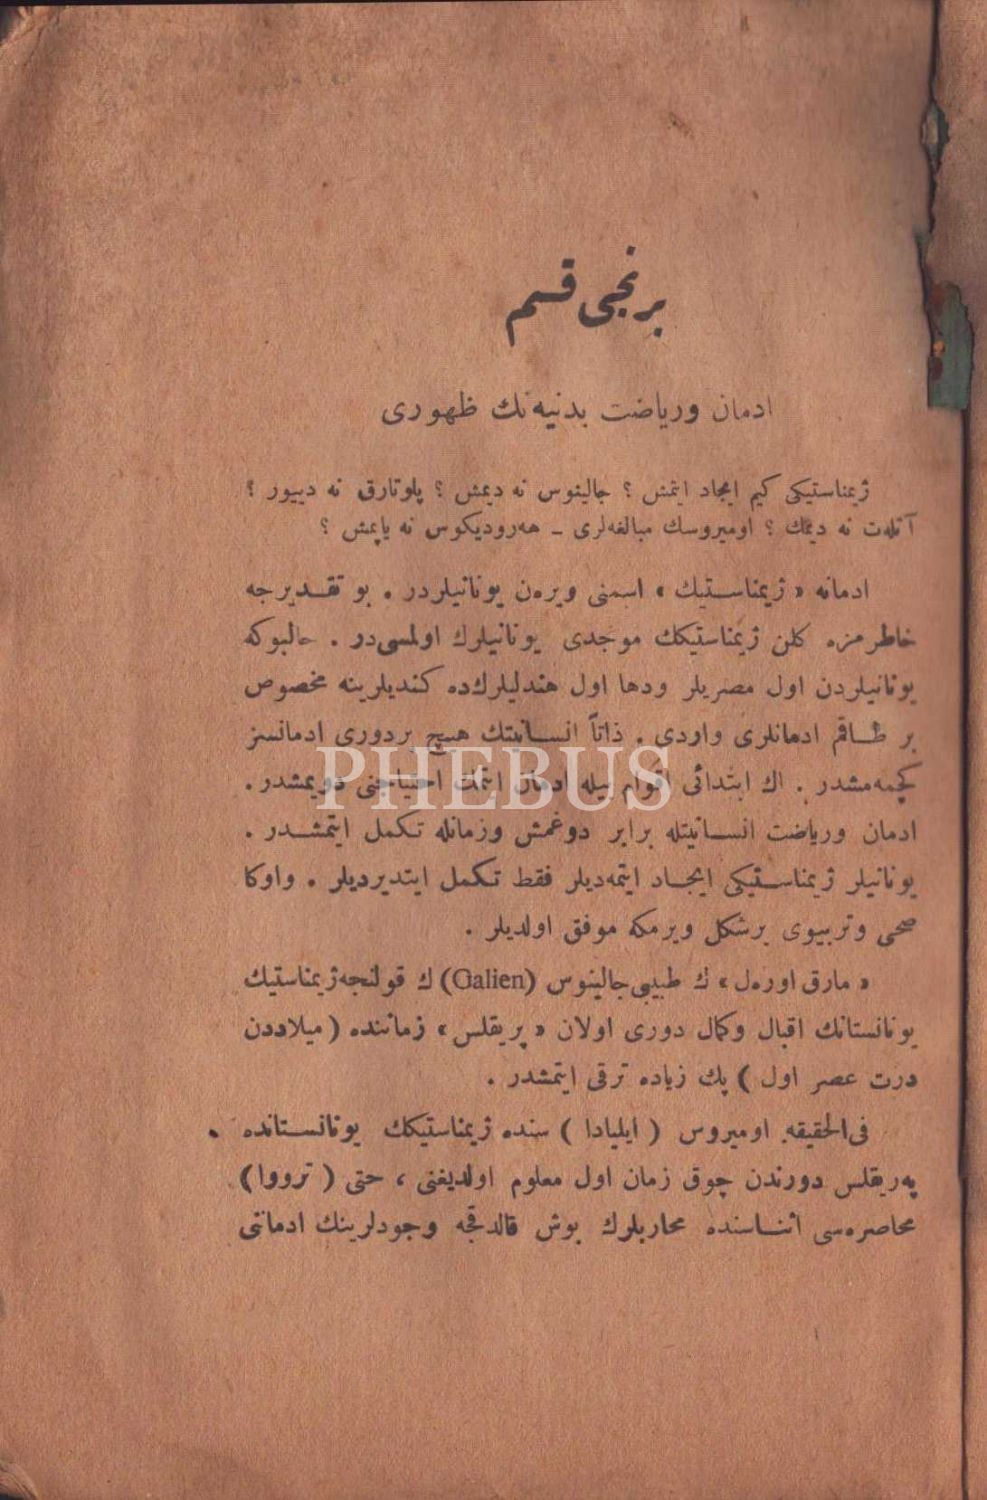 برنجی قسم
ادمان وریاضت بدنیه‌نك ظهوری
ژیمناستیکی کیم ایجاد ایتمش ؟ جالینوس نه دیمش ؟ پلوتارق نه دییور ؟
آتله‌ت نه دیمك ؟ اومیروسك مبالغه‌لری ــ هه‌رودیکوس نه یاپمش ؟
ادمانه « ژیمناستیك » اسمنی ویره‌ن یونانیلردر . بو تقدیرجه
خاطرمزه کلن ژیمناستیکك موجدی یونانیلرك اولمسی‌در . حالبوکه
یونانیلردن اول مصریلر ودها اول هندلیلرك‌ده کندیلرینه مخصوص
بر طاقم ادمانلری واردی . ذاتاً انسانیتك هیچ بردوری ادمانسز
کچمه‌مشدر . اك ابتدائی اقوام بیله ادمان ایتمك احتیاجنی دویمشدر .
ادمان وریاضت انسانیتله برابر دوغمش وزمانله تکمل ایتمشدر .
یونانیلر ژیمناستیکی ایجاد ایتمه‌دیلر فقط تکمل ایتدیردیلر . واوکا
صحی وتربیوی برشکل ویرمکه موفق اولدیلر .
« مارق اوره‌ل » ك طبیبی جالینوس (Galien) ك قولنجه ژیمناستیك
یونانستانك اقبال وکمال دوری اولان « پریقلس » زماننده ( میلاددن
درت عصر اول ) پك زیاده ترقی ایتمشدر .
فی‌الحقیقه اومیروس ( ایلیادا ) سنده ژیمناستیکك یونانستانده
په‌ریقلس دورندن چوق زمان اول معلوم اولدیغنی ، حتی ( ترووا )
محاصره‌سی اثناسنده محاربلرك بوش قالدقجه وجودلرینك ادمانی
PHEBUS